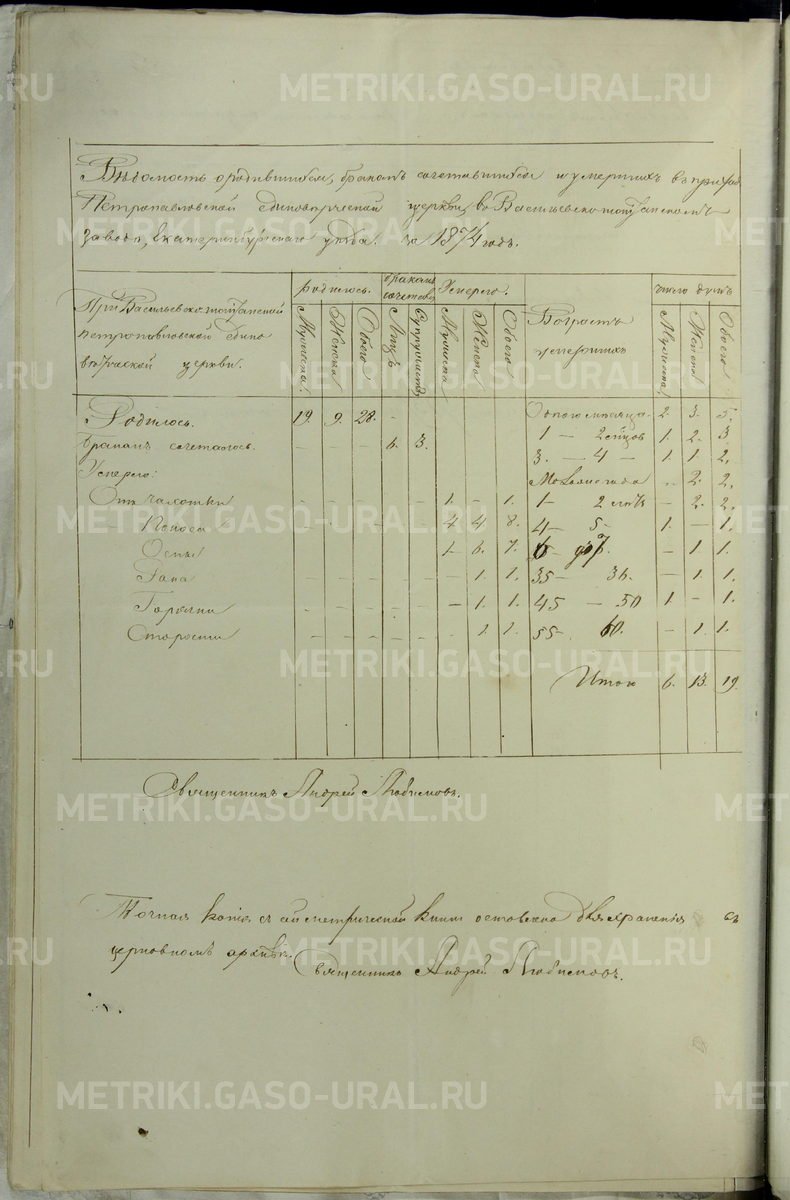 METRIKI.GASO-URAL.RU
Вѣдомость о родившихся, бракомъ сочетавшихся и умершихъ въ приходѣ
Петропавловской единовѣрческой церкви, во Васильево-шайтанскомъ
заводѣ, Екатеринбургскаго уѣзда. за 1874 годъ.
При Васильево-шайтанской Петропавловской единовѣрческой церкви.
родилось. Бракомъ сочетав. Умерло. Возрастъ умершихъ число душъ
Мужеска. Женска Обоего Лицъ Супружествъ Мужеска Женска Обоего Мужеска Женска Обоего
Родилось. 19. 9. 28. - Одного мѣсяца. 2. 3. 5.
Бракомъ сочеталось. - - - 6. 3. 1 — 2 мѣсяцовъ 1. 2. 3.
Умерло: 3. — 4 — 1. 1. 2.
года .. 2. 2.
Отъ чахотки - - - - - 1. - 1. 1 — 2 лѣтъ - 2. 2.
Поноса - - - - 4 4 8. 4 — 5 - 1. - 1.
Оспы 1 - 6. 7. 6 - до 7. - 1. 1.
Рака - - - - - - 1. 1. 35 - 36. - 1. 1.
Горячки - - - - - - 1. 1. 45 — 50 1. - 1.
Старости - - - - - - 1. 1. 55 - 60. - 1. 1.
Итого 6. 13. 19.
Священникъ Андрей Любимовъ.
Точная копія съ сей метрической книги оставлена для храненія въ
церковномъ архивѣ.
Священникъ Андрей Любимовъ.